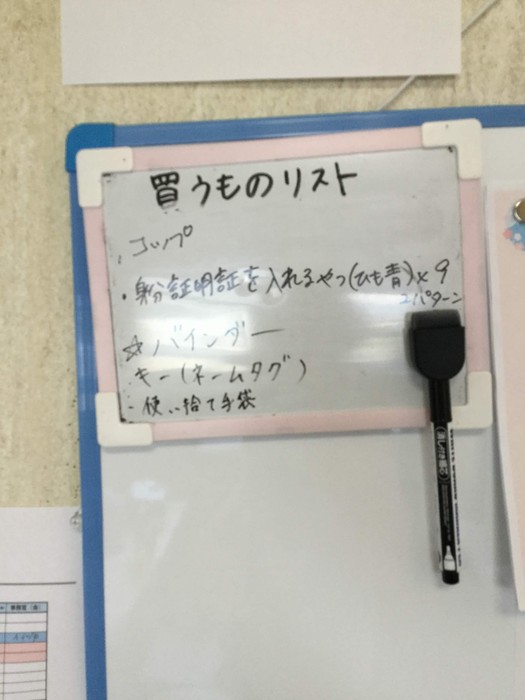 買うものリスト
・コップ
・身分証明証を入れるやつ(ひも青)×9
2パターン
☆バインダー
キー(ネームタグ)
・使い捨て手袋